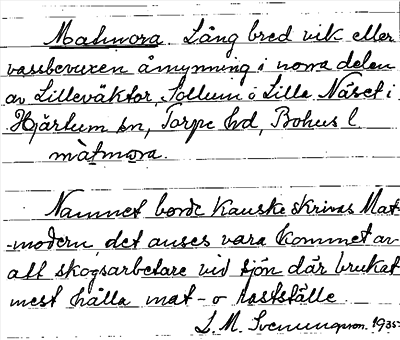 Matmora. Lång bred vik eller
vassbevuxen åmynning i norra delen
av Lilleväktor, Tollum o Lilla Näset i
Hjärtum sn, Torpe hd, Bohus l.
màtmora.
Namnet borde kanske skrivas Mat-
-modern, det anses vara kommet av
att skogsarbetare vid sjön där brukat
mest hålla mat- o rastställe
L. M. Svenungsson. 1935-